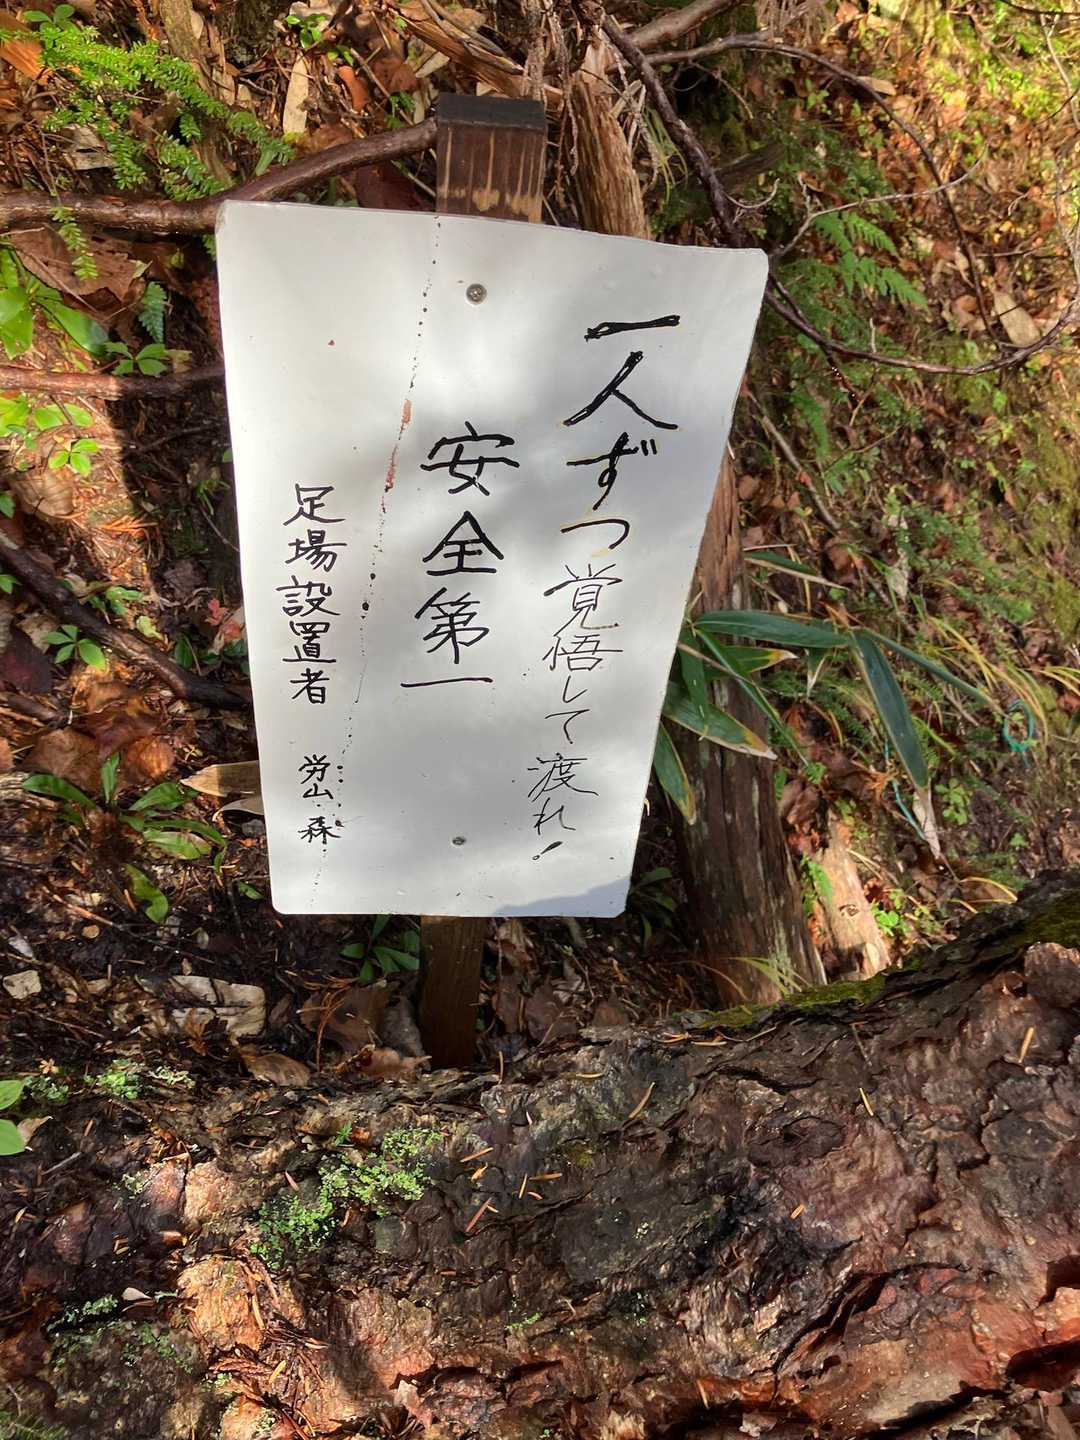 一人ずつ覚悟して渡れ!
安全第一
足場設置者 労山 森